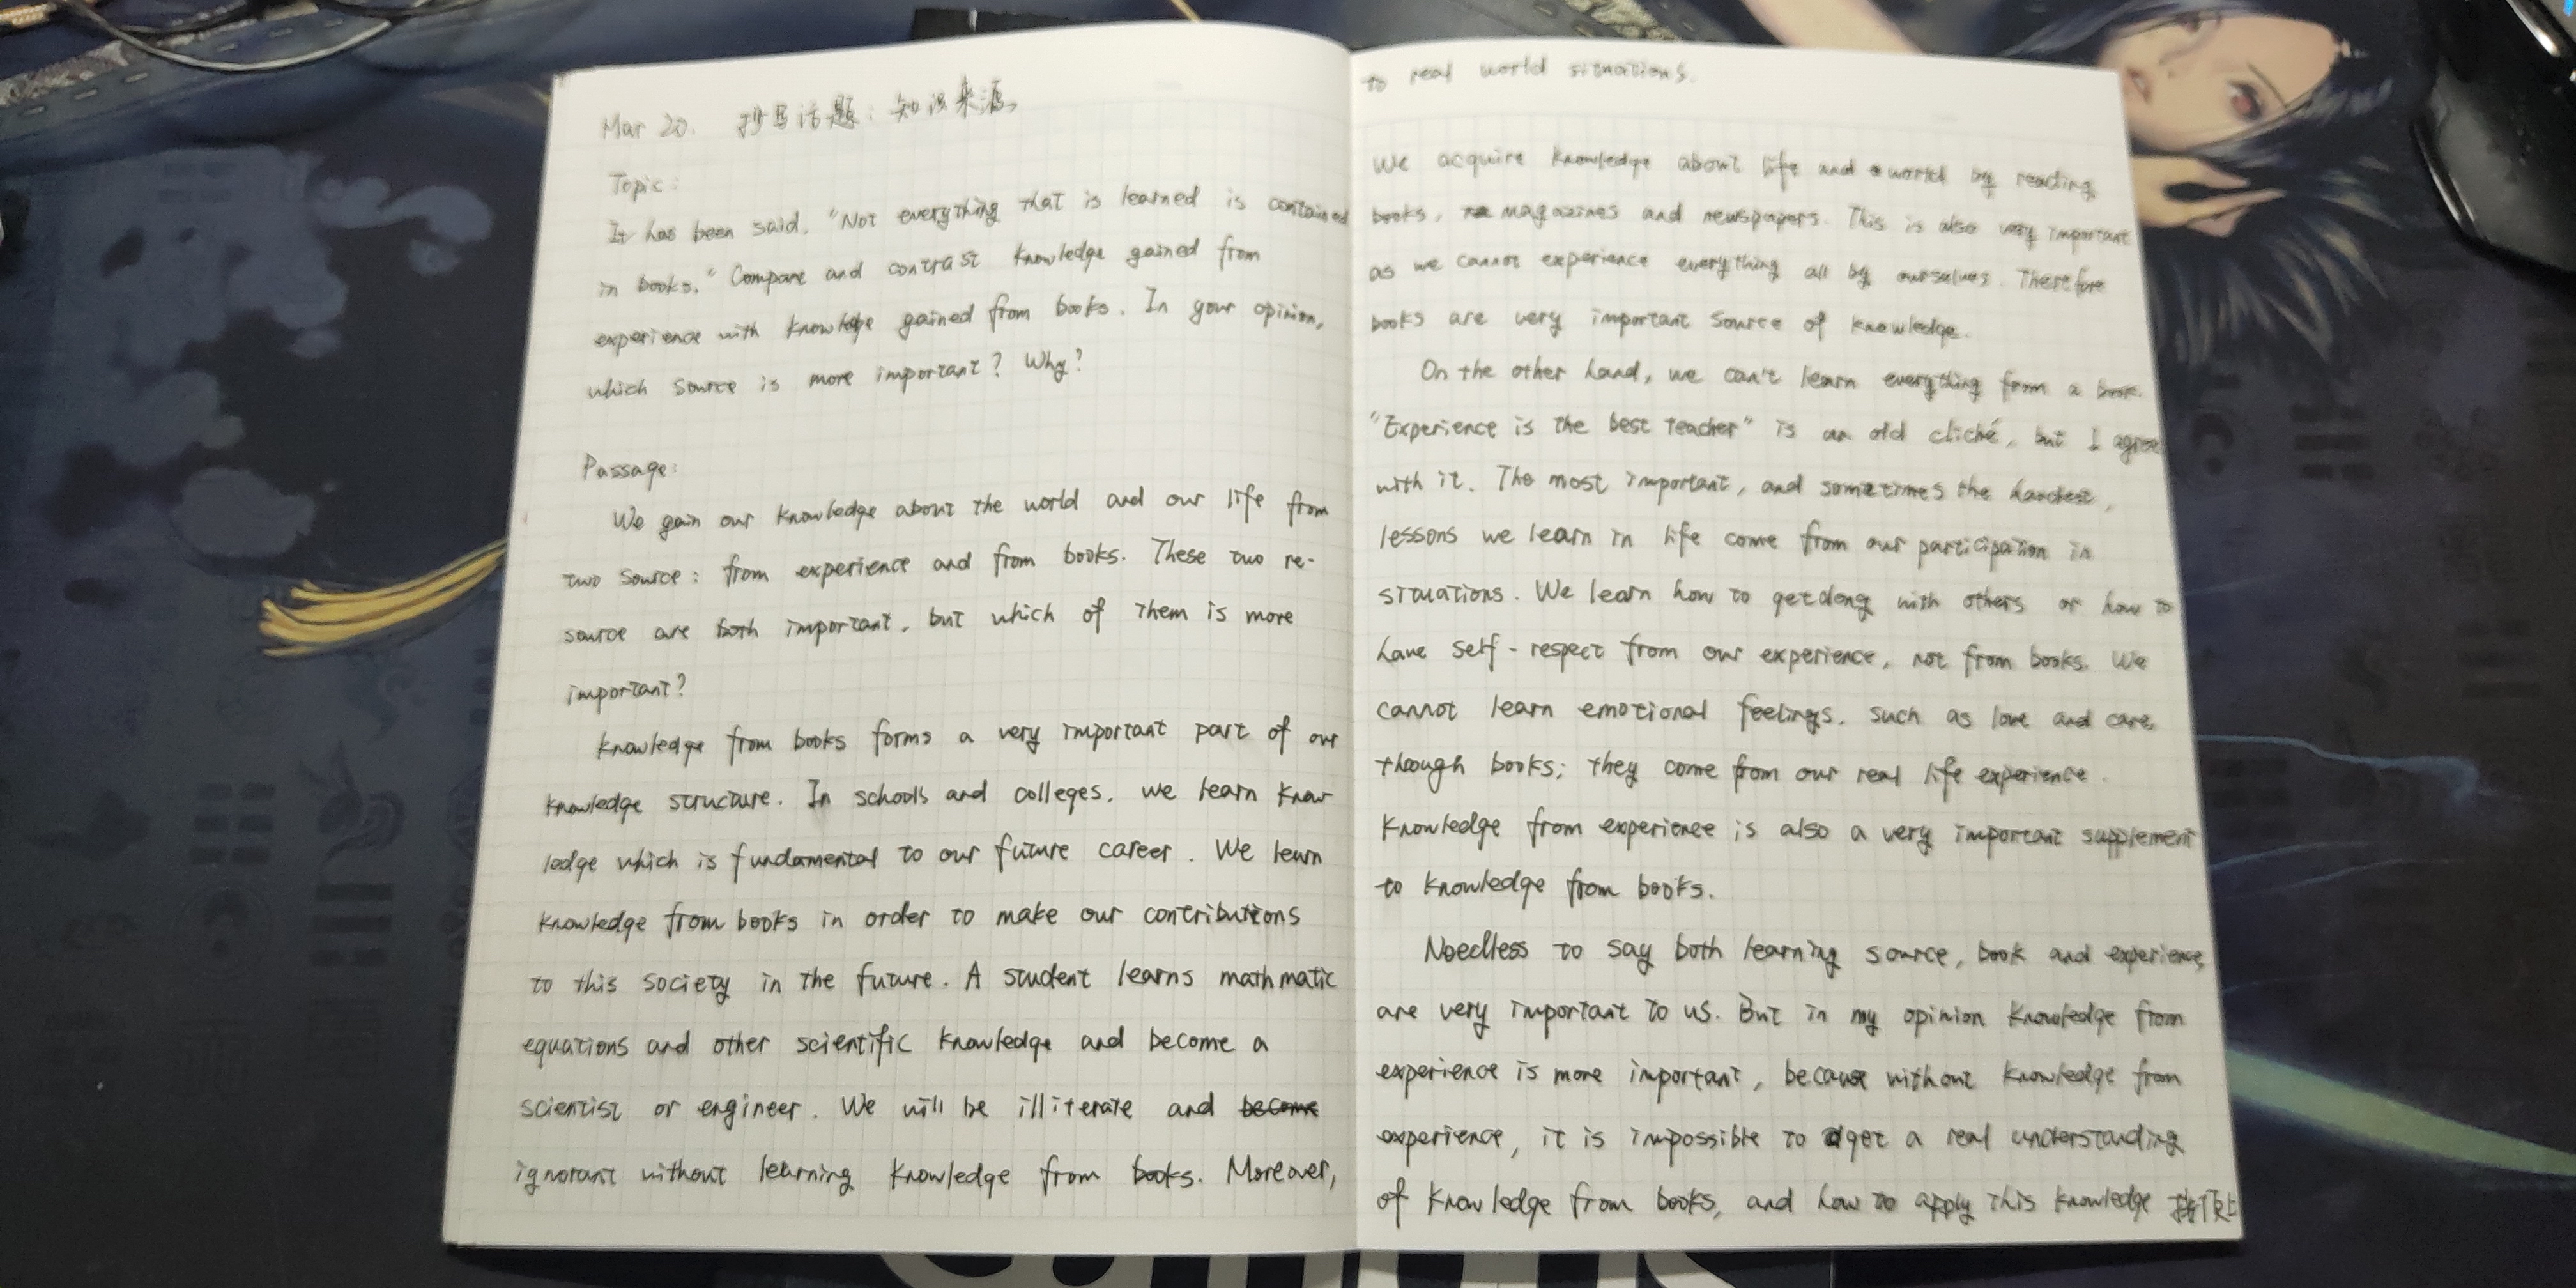 Mar 20. 抄写话题：知识来源
Topic:
It has been said, "Not everything that is learned is contained
in books." Compare and contrast knowledge gained from
experience with knowledge gained from books. In your opinion,
which source is more important? Why?
Passage:
We gain our knowledge about the world and our life from
two source: from experience and from books. These two re-
source are both important, but which of them is more
important?
Knowledge from books forms a very important part of our
knowledge structure. In schools and colleges, we learn know
ledge which is fundamental to our future career. We learn
knowledge from books in order to make our contributions
to this society in the future. A student learns mathmatic
equations and other scientific knowledge and become a
scientist or engineer. We will be illiterate and become
ignorant without learning knowledge from books. Moreover,
to real world situations.
We acquire knowledge about life and world by reading
books, magazines and newspapers. This is also very important
as we cannot experience everything all by ourselves. Therefore
books are very important source of knowledge.
On the other hand, we can't learn everything from a book.
"Experience is the best teacher" is an old cliché, but I agree
with it. The most important, and sometimes the hardest,
lessons we learn in life come from our participation in
situations. We learn how to get along with others or how to
have self-respect from our experience, not from books. We
cannot learn emotional feelings, such as love and care
though books; they come from our real life experience.
Knowledge from experience is also a very important supplement
to knowledge from books.
Needless to say both learning source, book and experience,
are very important to us. But in my opinion knowledge from
experience is more important, because without knowledge from
experience, it is impossible to get a real understanding
of knowledge from books, and how to apply this knowledge 接顶上